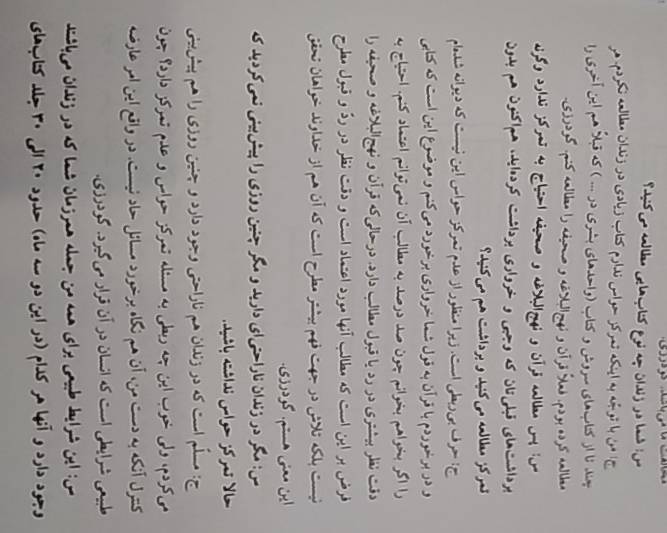 س: شما در زندان چه نوع کتاب‌هایی مطالعه می‌کنید؟
ج: من با توجه به اینکه تمرکز حواس ندارم کتاب زیادی در زندان مطالعه نکردم، هر
چند تا از کتاب‌های سروش و کتاب (واحدهای بشری در ...) که قبلاً هم این آخری را
مطالعه کرده بودم. فعلاً قرآن و نهج‌البلاغه و صحیفه را مطالعه کنم. گودرزی.
س: پس مطالعه قرآن و نهج‌البلاغه و صحیفه احتیاج به تمرکز ندارد وگرنه
برداشت‌های قبلی‌تان که وجبی و خرواری برداشت کرده‌اید، هم‌اکنون هم بدون
تمرکز مطالعه می‌کنید و برداشت هم می‌کنید؟
ج: حرف بی‌ربطی است. زیرا منظور از عدم تمرکز حواس این نیست که دیوانه شده‌ام
و در برخوردم با قرآن به قول شما خرواری برخورد می‌کنم و موضوع این است که کتابی
را اگر بخواهم بخوانم چون صد درصد به مطالب آن نمی‌توانم اعتماد کنم. احتیاج به
دقت نظر بیشتری در رد یا قبول مطالب دارد. در حالی که قرآن و نهج‌البلاغه و صحیفه را
فرض بر این است که مطالب آنها مورد اعتماد است و دقت نظر در ردّ و قبول مطرح
نیست بلکه تلاش در جهت فهم بیشتر مطرح است که آن هم از خداوند خواهان تحقق
این معنی هستم. گودرزی.
س: مگر در زندان ناراحتی‌ای دارید و مگر چنین روزی را پیش‌بینی نمی‌کردید که
حالا تمرکز حواس نداشته باشید.
ج: مسلّم است که در زندان هم ناراحتی وجود دارد و چنین روزی را هم پیش‌بینی
می‌کردم، ولی خوب این چه ربطی به مسئله تمرکز حواس و عدم تمرکز دارد؟ چون
کنترل آنکه به دست من، آن هم نگاه برخورد مسائل حاد نیست. در واقع این امر عارضه
طبیعی شرایطی است که انسان در آن قرار می‌گیرد. گودرزی.
س: این شرایط طبیعی برای همه من جمله همرزمان شما که در زندان می‌باشند
وجود دارد و آنها هر کدام (در این دو سه ماه) حدود ۲۰ الی ۳۰ جلد کتاب‌های